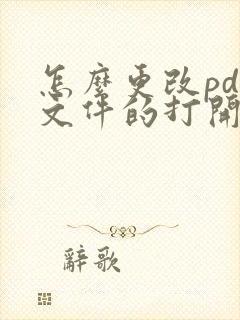 怎麼更改pd
文件的打開
辭歌